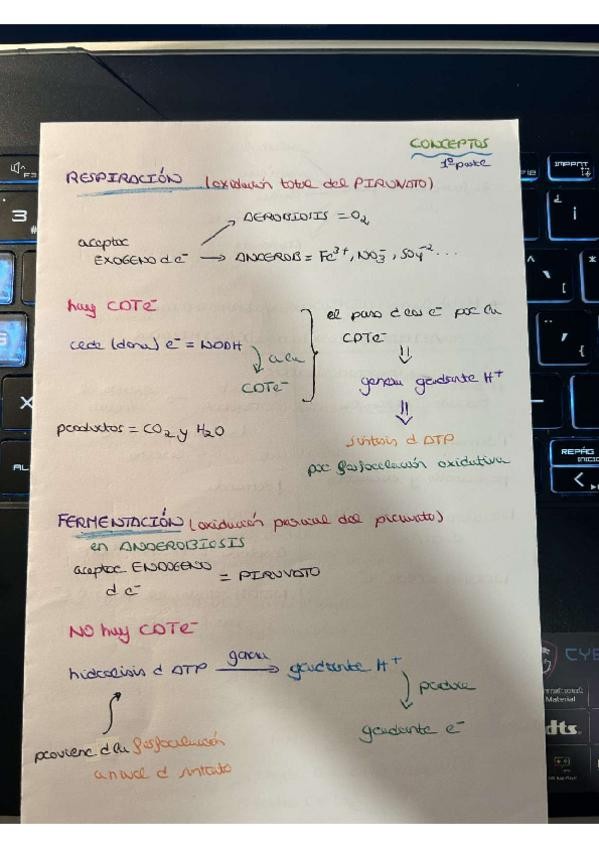 CONCEPTOS
1ª parte
RESPIRACIÓN (oxidación total del PIRUVATO)
AEROBIOSIS = O2
aceptor
EXOGENO d e- → ANAEROB = Fe3+, NO3-, SO4-2 ...
hay CDTe-
cede (dona) e- = NADH
a la
CDTe-
el paso d los e- por la
CDTe-
⇓
genera gradiente H+
⇓
síntesis d ATP
por fosforilación oxidativa
productos = CO2 y H2O
FERMENTACIÓN (oxidación parcial del piruvato)
en ANAEROBIOSIS
aceptor ENDOGENO
d e-
= PIRUVATO
NO hay CDTe-
hidrolisis d ATP genera → gradiente H+
produce
gradiente e-
proviene d la fosforilación
a nivel d sustrato
F3
3
IMPRNT
¡
*
{
X
REPÁG
INICIO
<
CYB
Material
dts